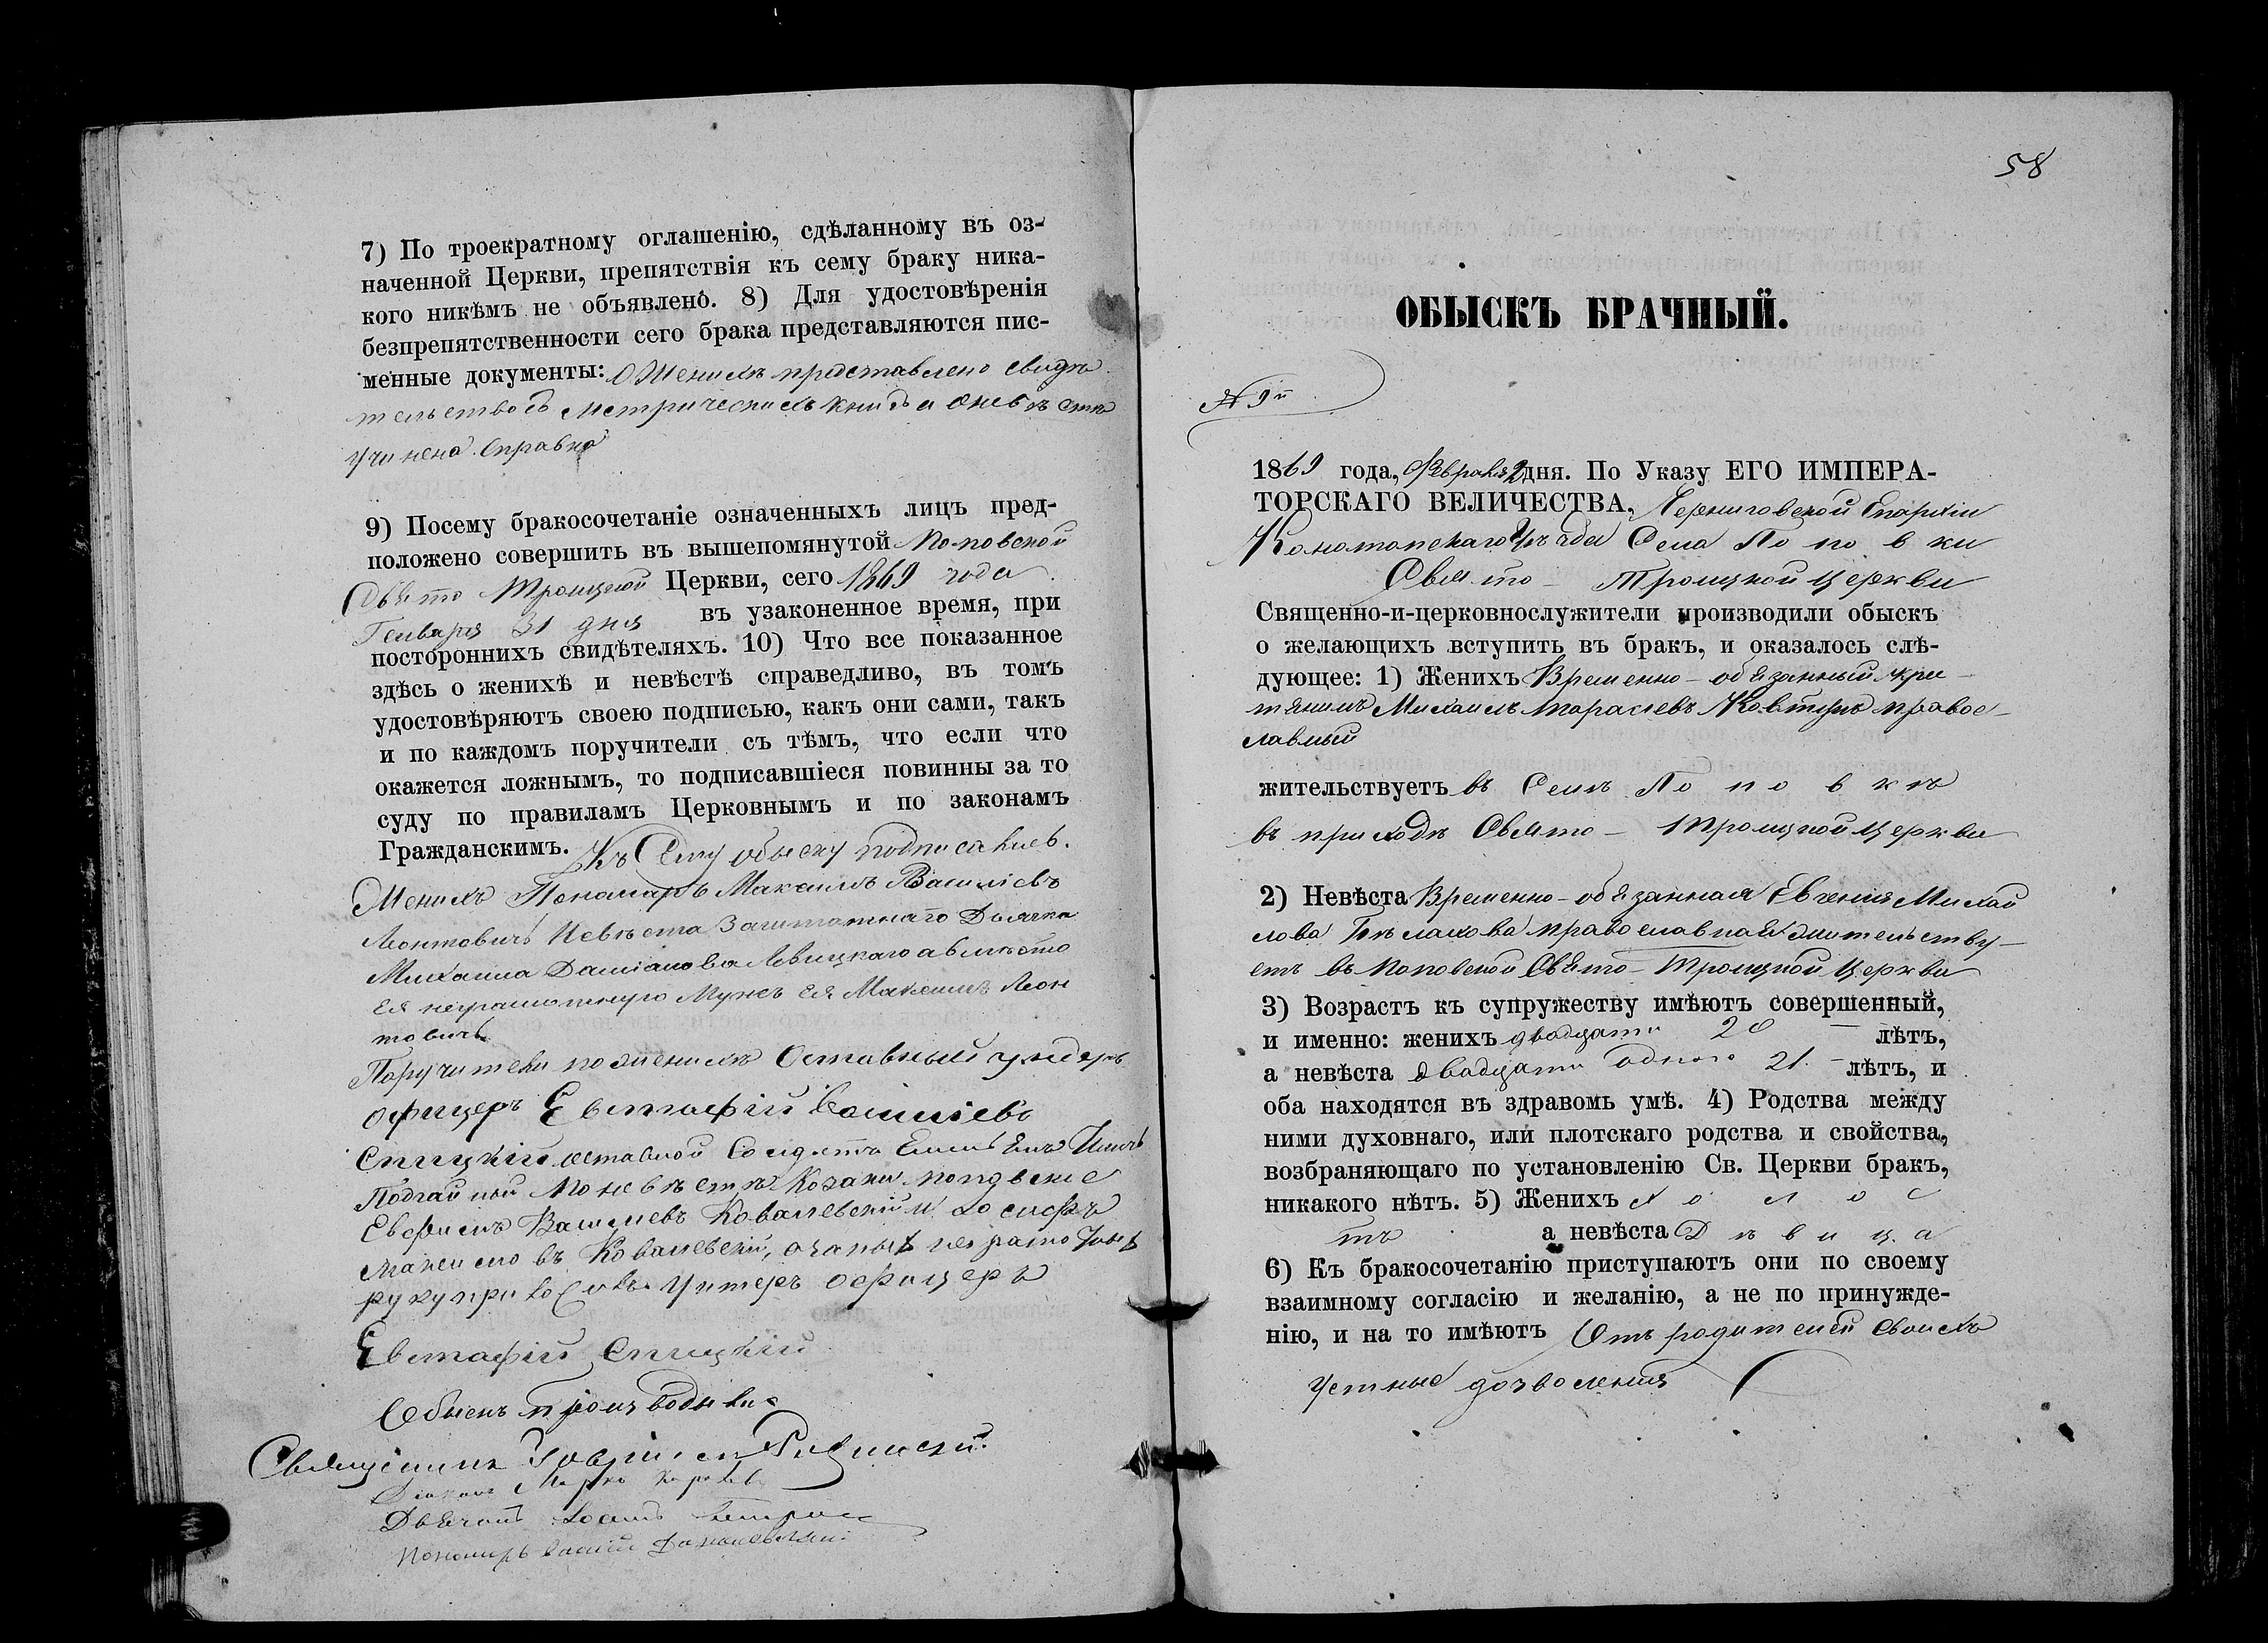 7) По троекратному оглашенію, сдѣланному въ оз-
наченной Церкви, препятствія къ сему браку ника-
кого никѣмъ не объявлено. 8) Для удостовѣренія
безпрепятственности сего брака представляются пис-
менные документы: О Женихѣ представлено свидѣ
тельство съ метрическихъ книгъ а о невѣстѣ
учинена справка
9) Посему бракосочетаніе означенныхъ лицъ пред-
положено совершить въ вышепомянутой Поповской
Свято Троицкой Церкви, сего 1869 года
Генваря 31 дня въ узаконенное время, при
постороннихъ свидѣтеляхъ. 10) Что все показанное
здѣсь о женихѣ и невѣстѣ справедливо, въ томъ
удостовѣряютъ своею подписью, какъ они сами, такъ
и по каждомъ поручители съ тѣмъ, что если что
окажется ложнымъ, то подписавшіеся повинны за то
суду по правиламъ Церковнымъ и по законамъ
Гражданскимъ. Къ Сему обыску подписались.
Женихъ Пономарь Максимъ Васильевъ
Леонтовичъ Невѣста Заштатнаго Дьячка
Михаила Даміанова Левицкаго а вмѣсто
Ея неграмотную Мужъ Ея Максимъ Леон
товичъ
Поручители по женихѣ Оставный ундеръ
офицеръ Евстафій Васильевъ
Спицкій оставной Солдатъ
Подгайный По невѣстѣ Козаки поповскіе
Евфимъ Васильевъ Ковалевскій и
Ковалевскій, а за ныхъ неграмотныхъ
руку приложилъ Унтеръ офицеръ
Евстафій Спицкій
Обыскъ производили
Священникъ Гавріилъ
Діаконъ Марко
Дьячокъ Іоаннъ
Пономарь Василій
58
ОБЫСКЪ БРАЧНЫЙ.
№ 9й
1869 года, Февраля 2 дня. По Указу ЕГО ИМПЕРА-
ТОРСКАГО ВЕЛИЧЕСТВА, Черниговской Епархіи
Конотопскаго Уѣзда Села Поповки
Свято-Троицкой Церкви
Священно-и-церковнослужители производили обыскъ
о желающихъ вступить въ бракъ, и оказалось слѣ-
дующее: 1) Женихъ Временно-обязанный кре-
тянинъ Михаилъ Тарасіевъ Ковтунъ правос-
лавный
жительствуетъ въ Селѣ Поповкѣ
въ приходѣ Свято-Троицкой Церкви
2) Невѣста Временно-обязанная Евгенія Михай
лова православная жительству-
етъ въ Поповской Свято-Троицкой Церкви
3) Возрастъ къ супружеству имѣютъ совершенный,
и именно: женихъ двадцати 20 лѣтъ,
а невѣста двадцати одного 21 лѣтъ, и
оба находятся въ здравомъ умѣ. 4) Родства между
ними духовнаго, или плотскаго родства и свойства,
возбраняющаго по установленію Св. Церкви бракъ,
никакого нѣтъ. 5) Женихъ холос
тъ а невѣста Дѣвица
6) Къ бракосочетанію приступаютъ они по своему
взаимному согласію и желанію, а не по принужде-
нію, и на то имѣютъ Отъ родителей своихъ
устные дозволенія